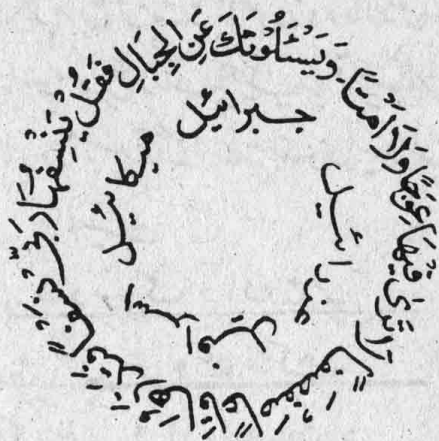 وَيَسْئَلُونَكَ عَنِ الْجِبَالِ فَقُلْ يَنْسِفُهَا رَبِّي نَسْفًا فَيَذَرُهَا قَاعًا صَفْصَفًا لَا تَرَى فِيهَا عِوَجًا وَلَا أَمْتًا
جبرائيل
ميكائيل
اسرافيل
عزرائيل